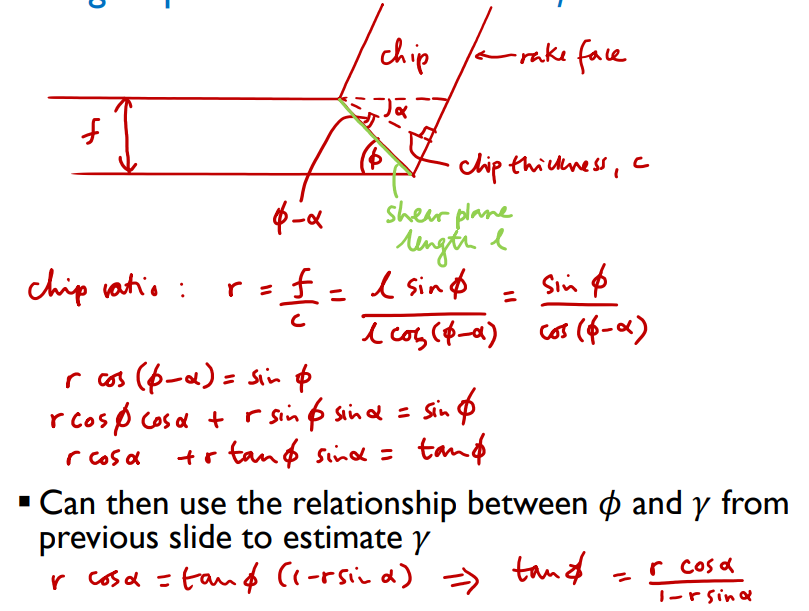 chip
rake face
α
f
ϕ
chip thickness, c
ϕ-α
shear plane
length l
chip ratio : r = f/c = l sin ϕ / l cos (ϕ-α) = sin ϕ / cos (ϕ-α)
r cos (ϕ-α) = sin ϕ
r cos ϕ cos α + r sin ϕ sin α = sin ϕ
r cos α + r tan ϕ sin α = tan ϕ
▪ Can then use the relationship between ϕ and γ from
previous slide to estimate γ
r cos α = tan ϕ (1-r sin α) ⇒ tan ϕ = r cos α / 1-r sin α